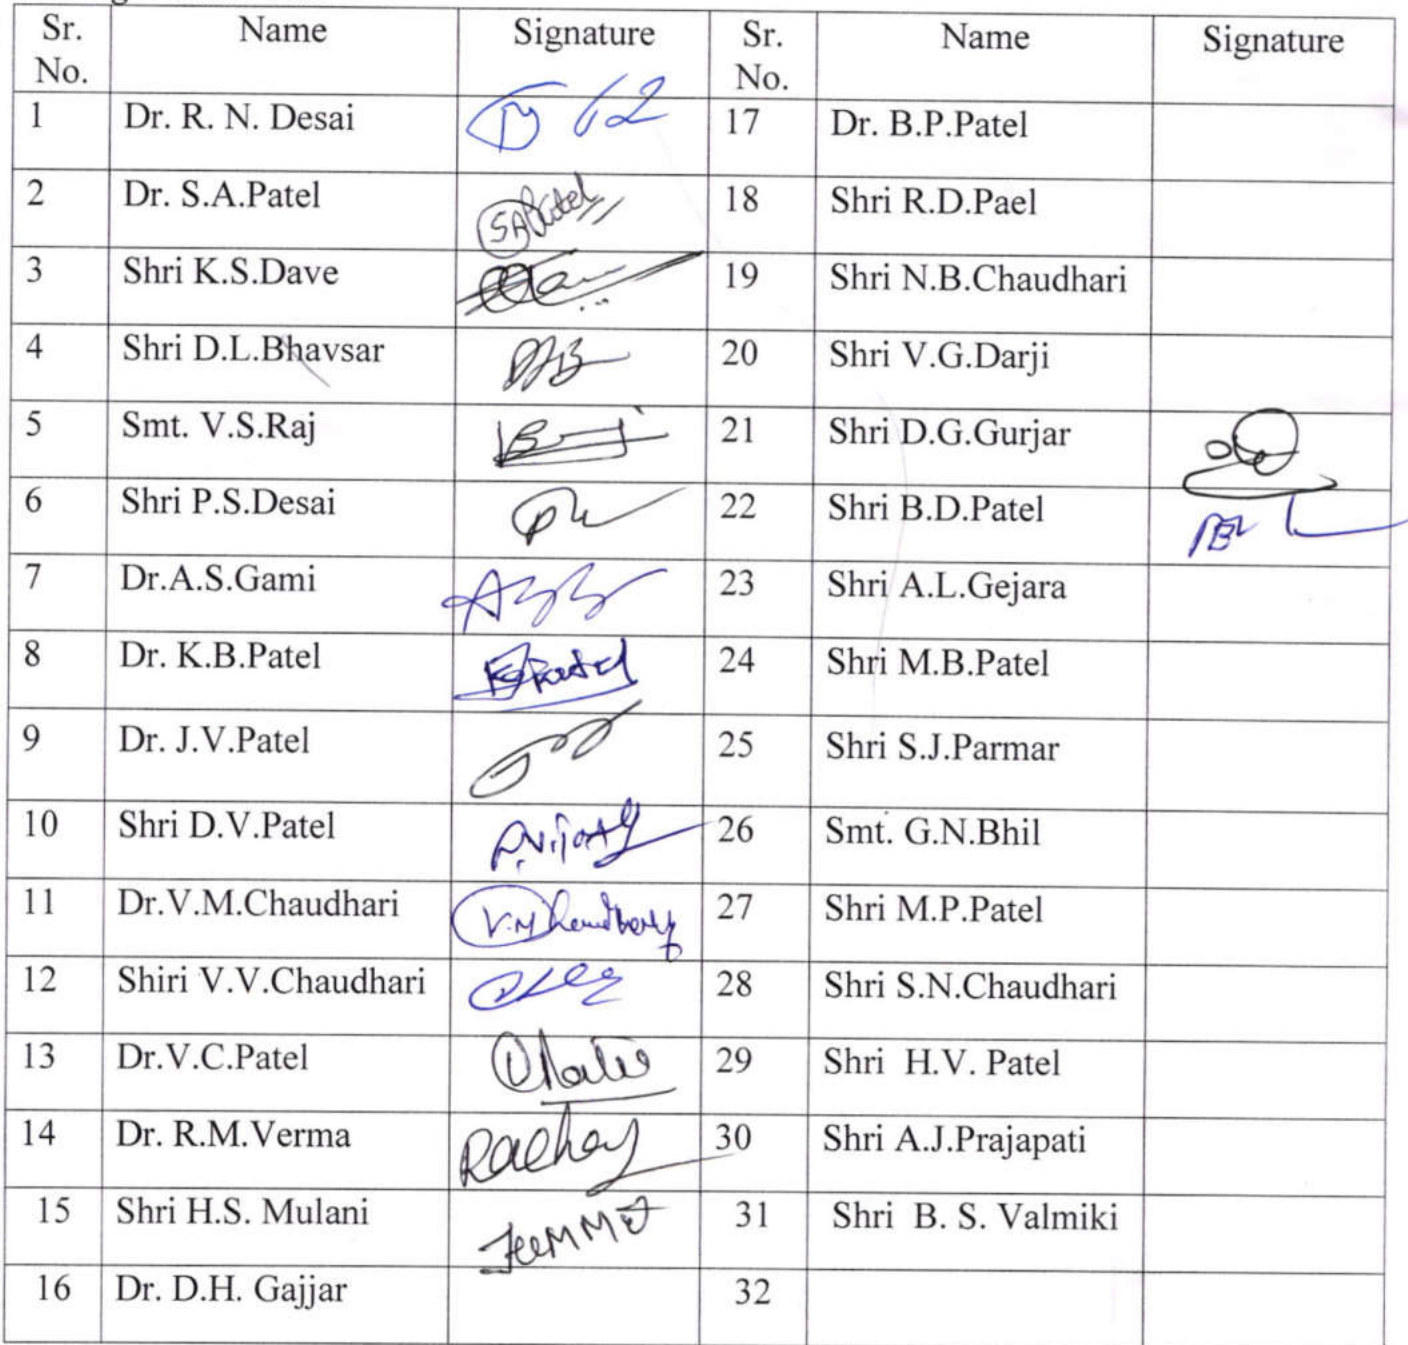 Sr. No. Name Signature Sr. No. Name Signature
1 Dr. R. N. Desai 17 Dr. B.P.Patel
2 Dr. S.A.Patel SAPatel 18 Shri R.D.Pael
3 Shri K.S.Dave 19 Shri N.B.Chaudhari
4 Shri D.L.Bhavsar 20 Shri V.G.Darji
5 Smt. V.S.Raj 21 Shri D.G.Gurjar
6 Shri P.S.Desai 22 Shri B.D.Patel
7 Dr.A.S.Gami 23 Shri A.L.Gejara
8 Dr. K.B.Patel 24 Shri M.B.Patel
9 Dr. J.V.Patel 25 Shri S.J.Parmar
10 Shri D.V.Patel 26 Smt. G.N.Bhil
11 Dr.V.M.Chaudhari V.M Chaudhary 27 Shri M.P.Patel
12 Shiri V.V.Chaudhari 28 Shri S.N.Chaudhari
13 Dr.V.C.Patel 29 Shri H.V. Patel
14 Dr. R.M.Verma 30 Shri A.J.Prajapati
15 Shri H.S. Mulani 31 Shri B. S. Valmiki
16 Dr. D.H. Gajjar 32